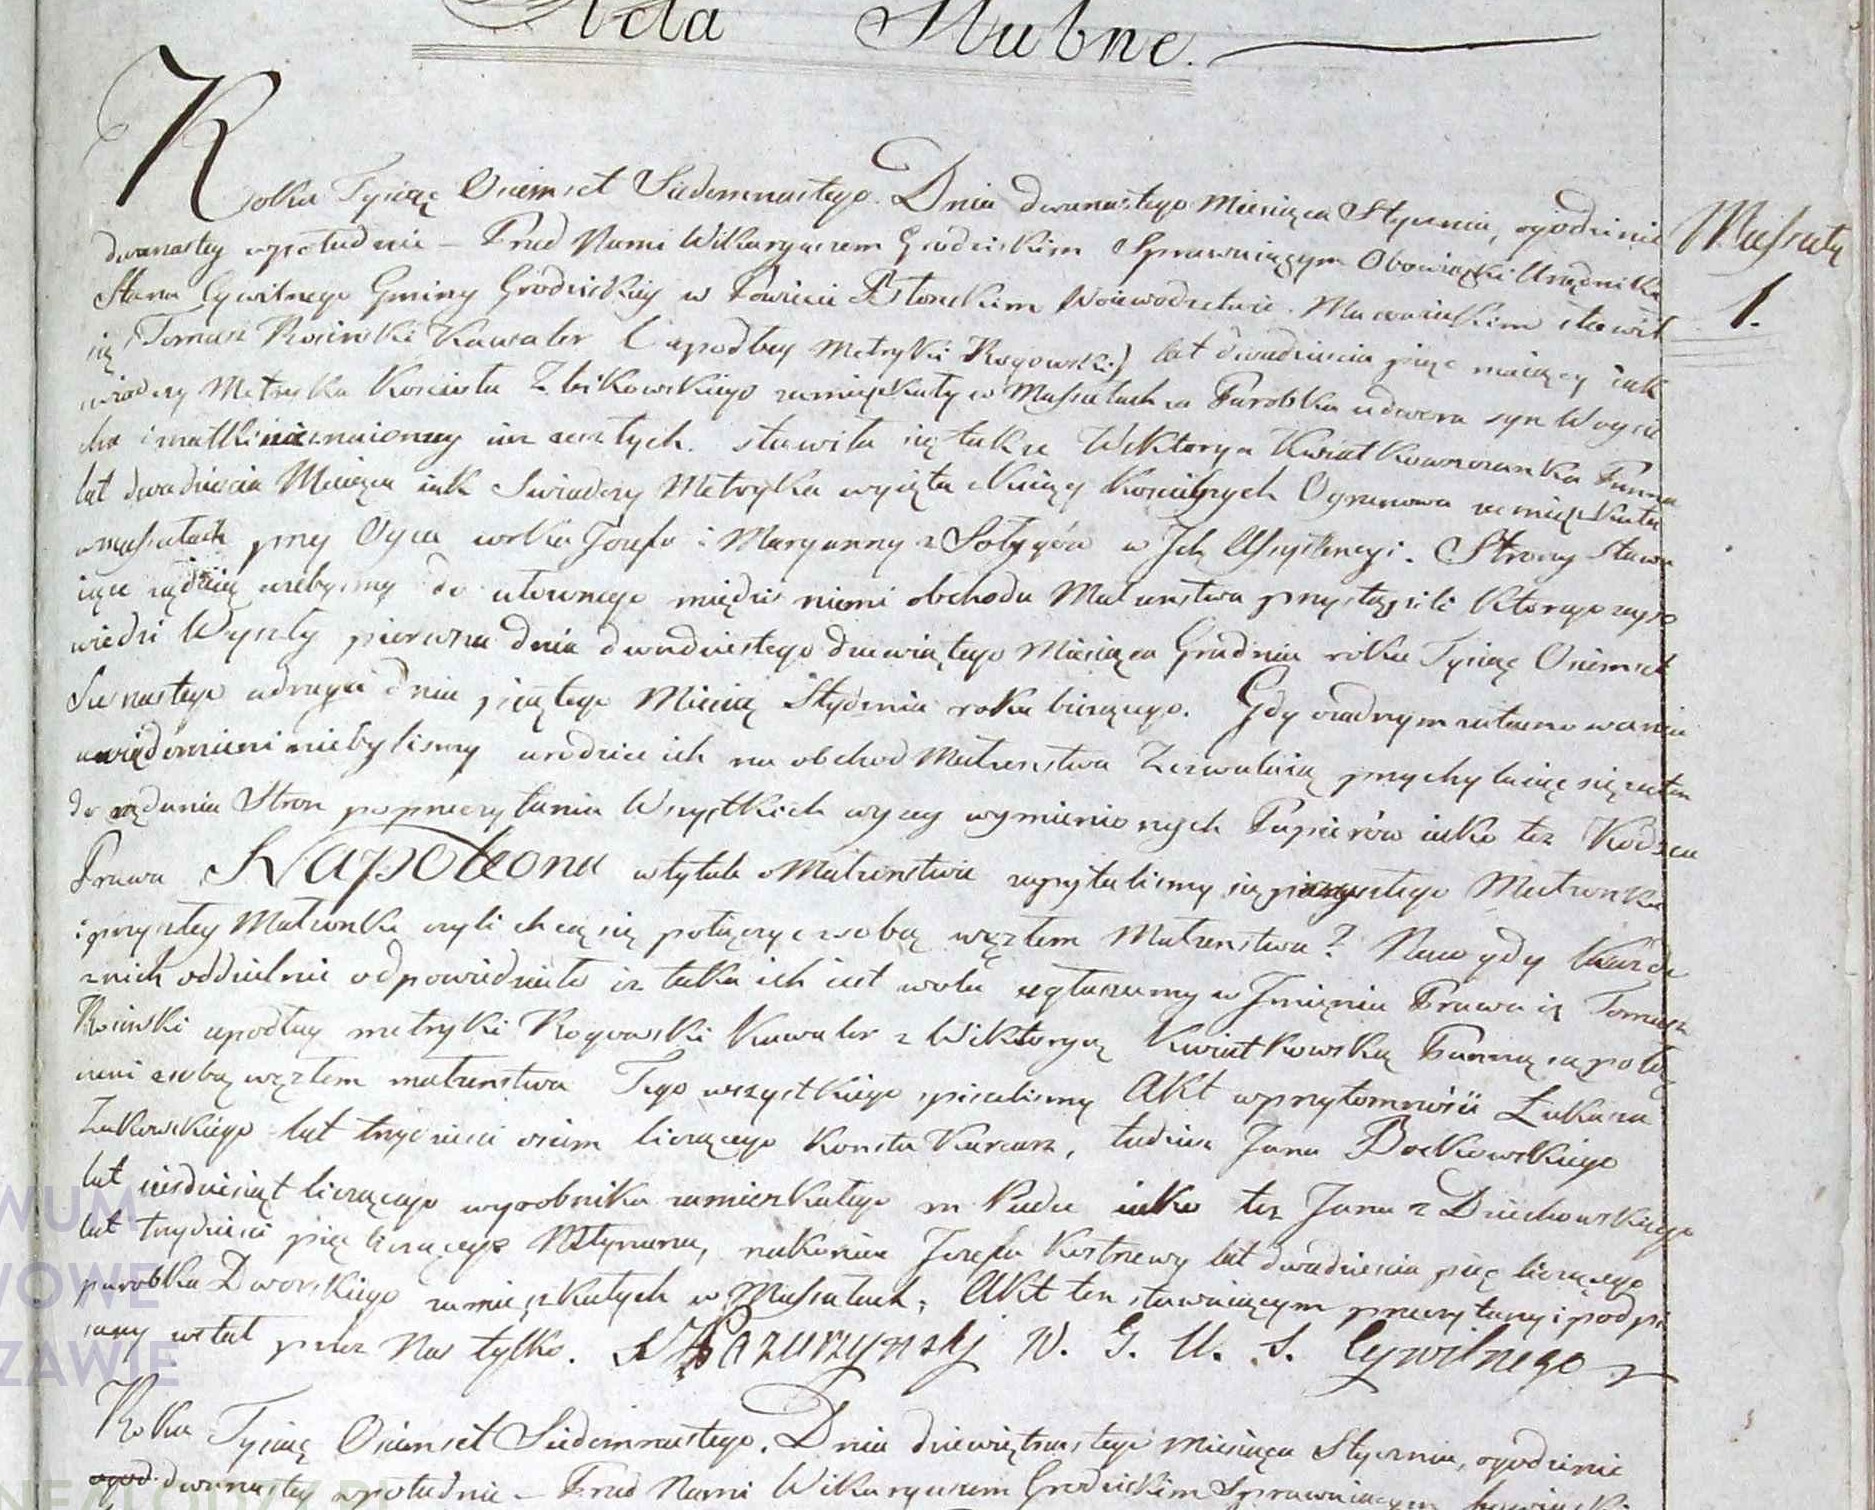 Acta Slubne.
Massuty
1.
Roku Tysiąc Osiemset Siedemnastego. Dnia dwunastego Miesiąca Stycznia, ogodzinie
dwunastey wpołudnie – Przed Nami Wikaryuszem Grodziskim Sprawuiącym Obowiązki Urzędnika
Stanu Cywilnego Gminy Grodziskiey w Powiecie Błonskim Woiewodztwie Mazowieckim stawił
się Tomasz Rosinski Kawaler (apodług Metryki Rogowski) lat dwadziescia pięc maiący iak
swiadczy Metryka Koscioła Zbikowskiego zamięszkały w Massutach za Parobka udwora syn Woycie
cha i matki nieznaiomey iuz zeszłych. stawiła się takze Wiktorya Kwiatkowszczanka Panna
lat dwadziescia Maiąca iak Swiadczy Metryka wyięta zKsiąg Koscielnych Zgranowa zamięszkała
wmassutach przy Oycu Jozefa i Maryanny z w Jch Assystencyi. Strony stawa
iące ządaią azebysmy do ułozonego między niemi obchodu Małzenstwa przystąpili ktorego zapo
wiedzi Wyszły pierwsza dnia dwudziestego dziewiątego Miesiąca Grudnia roku Tysiąc Osiemset
Sesnastego adruga dnia piątego Miesią Stycznia roku biezącego. Gdy ozadnym zatamowaniu
uwiędomieni niebylismy arodzice ich na obchod Małzenstwa Zezwalaią przychylaiąc się zatem
do ządania Stron poprzeczytaniu Wszystkich wyzey wymienionych Papierów iako tez Kodexu
Prawa Napoleona wtytule oMałzenstwie zapytalismy się przyszłego Małzonka
i przyszłey Małzonki czyli chcą się połączyc zsobą węzłem Małzenstwa? Naco gdy Kazde
znich oddzielnie odpowiedziało iz taka ich iest wola ogłaszamy w Jmieniu Prawa iz Tomasz
Rosinski apodług metryki Rogowski Kawaler z Wiktoryą Kwiatkowską Panną są połą
czeni zsobą węzłem małzenstwa Tego wszystkiego spisalismy Akt wprzytomności Łukasza
Zukowskiego lat trzydziesci osiem liczącego Karczmarz, tudziez Jana Bockowskiego
lat szesdziesiąt liczącego wyrobnika zamieszkałego iako tez Jana z Dziechowskiego
lat trzydziesci pięc liczącego Młynarza, nakoniec Jozefa lat dwadziescia pięc liczącego
parobka Dworskiego zamięszkałych w Massutach; Akt ten stawaiącym przeczytany i podpi
sany został przez Nas tylko. W. G. U. S. Cywilnego
Roku Tysiąc Osiemset Siedemnastego. Dnia dziewiętnastego miesiąca Stycznia, ogodzinie
dwunastey wpołudnie – Przed Nami Wikaryuszem Grodziskim Sprawuiącym